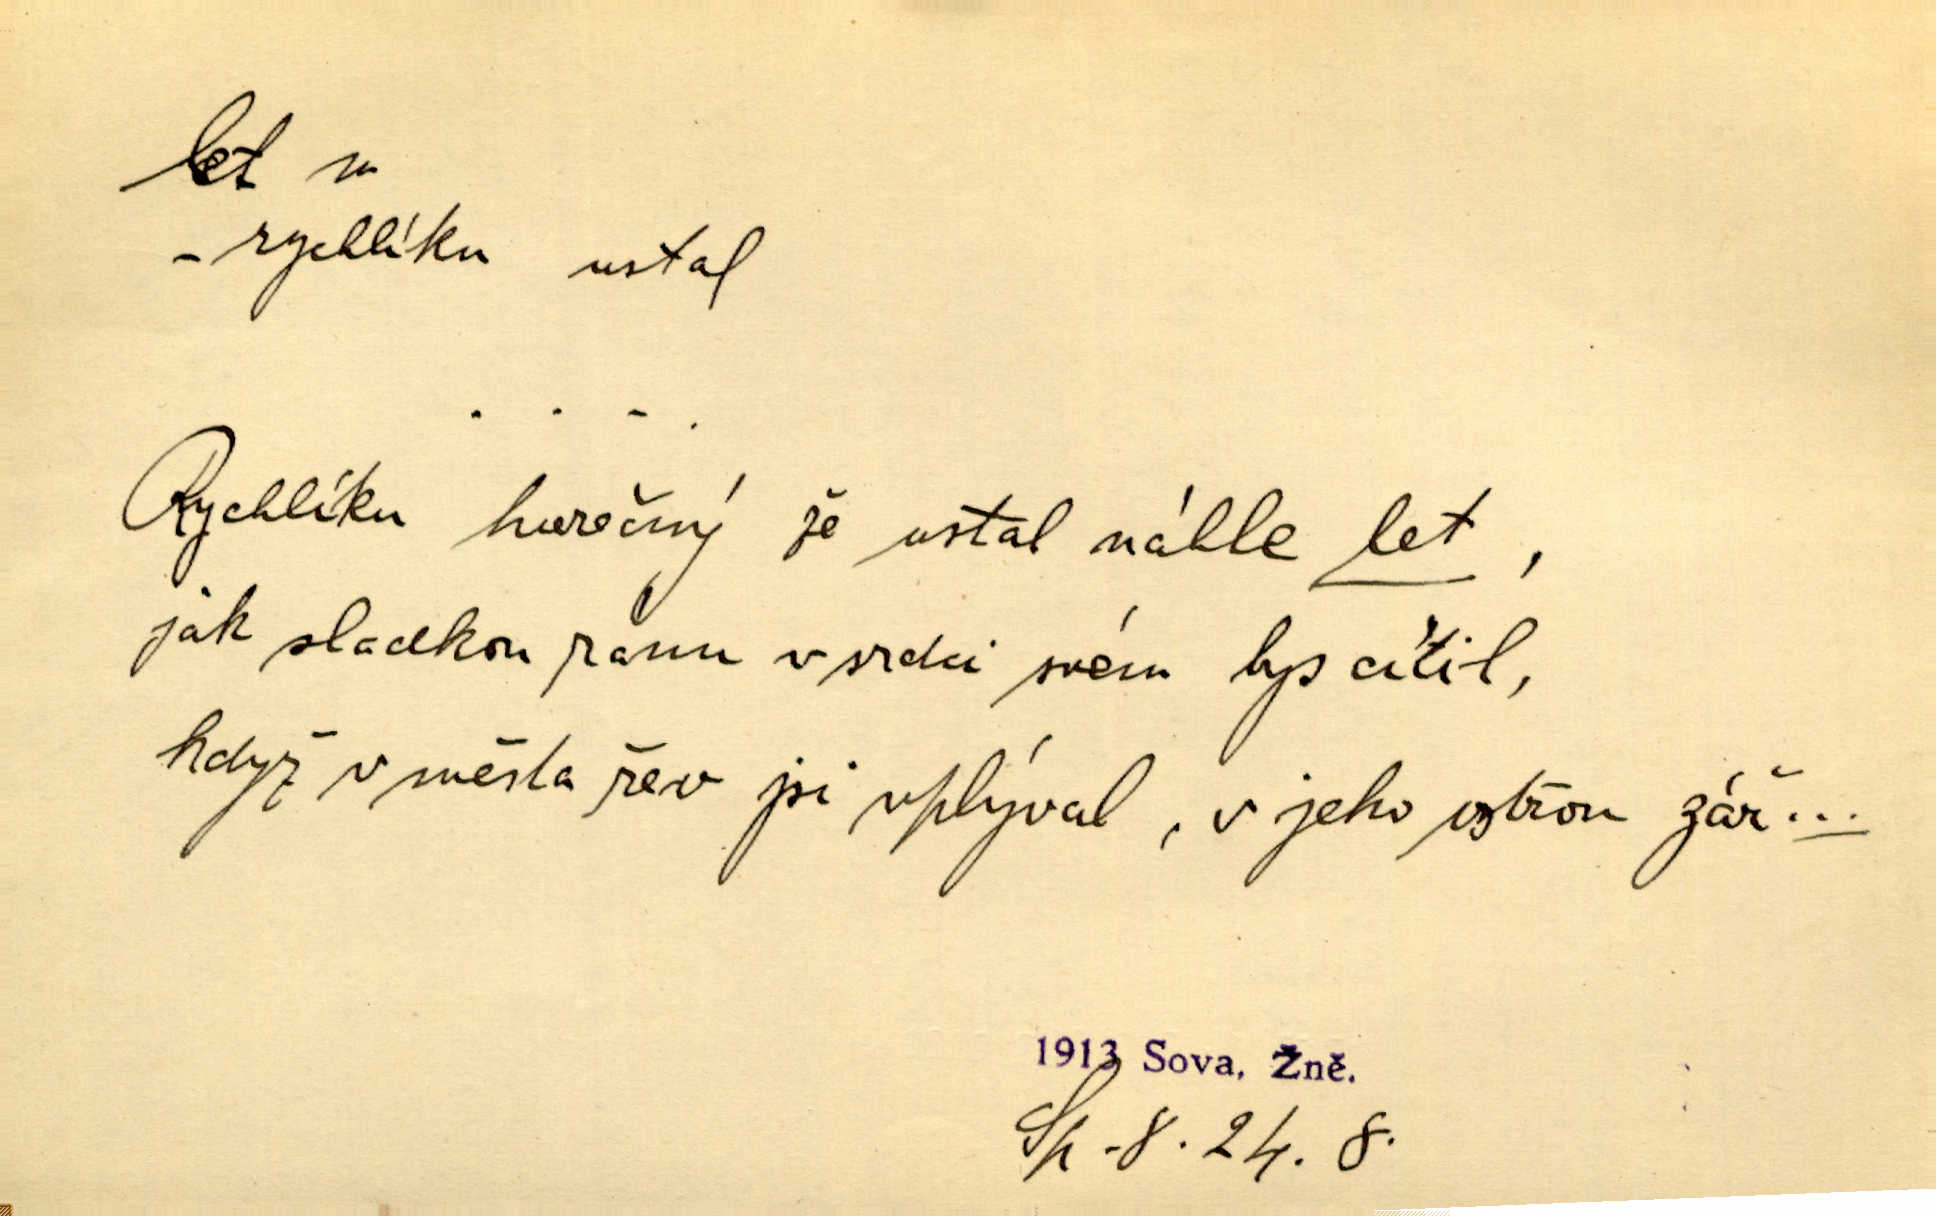 let m
- rychlíku ustal
. . - .
Rychlíku horečný že ustal náhle let,
jak sladkou ranu v srdci svém bys cítil,
když v města řev jsi vplýval, v jeho ostrou zář...
1913 Sova, Žně.
Sp. 8. 24. 8.